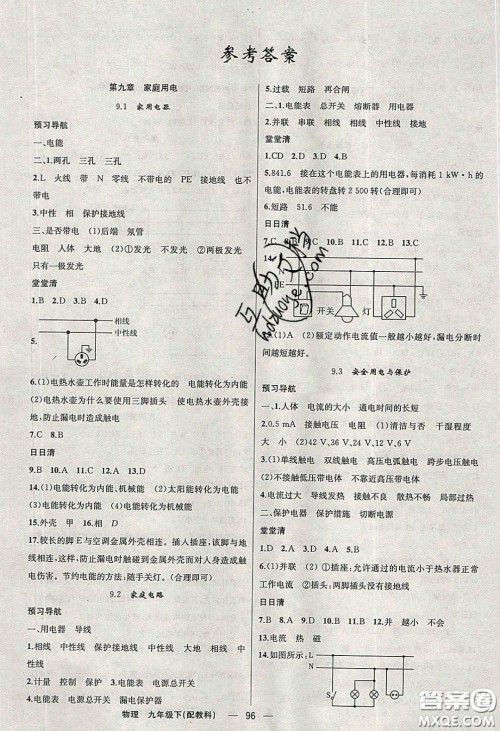 参考答案
第九章 家庭用电
9.1 家用电器
预习导航
一、电能
二、1.两孔 三孔 三孔
2.L 火线 带 N 零线 不带电的 PE 接地线 也不
带电
3.中性 相 保护接地线
三、是否带电 (1)后端 氖管
电阻 人体 大地 (2)①发光 不发光 ②发光
只有一极发光
堂堂清
1.B 2.D 3.B 4.D
5.
相线
中性线
6.(1)电热水壶工作时能量是怎样转化的 电能转化为内能
(2)电热水壶为什么要使用三脚插头 使电热水壶外壳接
地,防止漏电时造成触电
7.C 8.B
日日清
9.B 10.A 11.D 12.C 13.D
14.(1)电能转化为内能、机械能 (2)太阳能转化为电能
(3)电能转化为内能 (4)电能转化为机械能
15.外壳 甲 16.A D
17.较长的脚是E与空调金属外壳相连。插人插座,该脚与地
线相连,防止漏电时触碰到金属外壳而发生触电,造成人
员伤害。节约电能的方法:随手关灯。(合理即可)
9.2 家庭电路
预习导航
一、用电器 导线
二、1.相线 中性线 保护接地线 中性线 相线
2.相线 中性线 相线 保护接地线 中性线 相线
3.相线
4.电能表 电源总开关 漏电保护器
5.过载 短路 再合闸
二、1.电能表 总开关 熔断器 用电器
2.并联 串联 相线 相线 中性线 地线
堂堂清
1.CD 2.D 3.A 4.B
5.841.6 接在这个电能表上的用电器,每消耗1 kW·h的
电能,电能表的转盘转2 500转(合理即可)
6.短路 51.6 不能
日日清
7.C 8.C 9.C 10.B 11.B 12.A 13.C
14.
PE
开关 灯
(1)A (2)额定动作电流值一般越小越好,漏电分断时
间越短越好。
9.3 安全用电与保护
预习导航
一、1.人体 电流的大小 通电时间的长短
2.0.5 mA 接触电压 电阻 (1)清洁与否 干湿程度
大 小 (2)42 V、36 V、24 V、12 V、6 V
3.(1)单线触电 双线触电 高压电弧触电 跨步电压触电
(2)不接触低压带电体 不靠近高压带电体
4.电流过大 过载 短路 接触不良 散热不畅 高热
二、保护电器 保护措施 切断电源
堂堂清
1.D 2.D 3.A 4.C 5.A
6.(1)并联 (2)①插座:允许通过的电流小于热水器正常
工作电流 ②插头:两脚插头没有接地线
日日清
7.D 8.B 9.D 10.D 11.B 12.并 越小 不会
13.电流 热 磁
14.如图所示:
L
N
S
物理 九年级下(配教科) — 96 —
互助习挡
hozuoye.com
答案圈
MXQE.COM